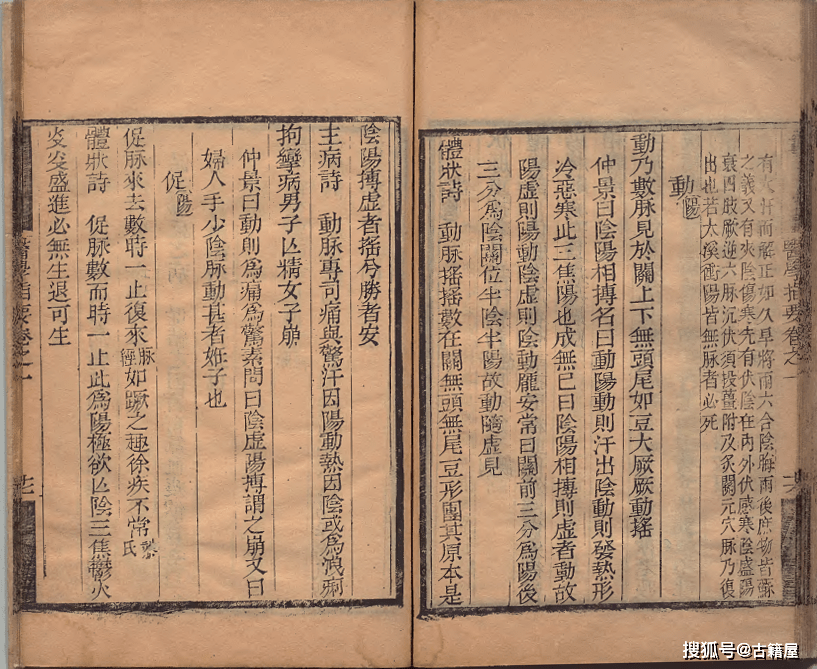 有大汗而解正如久旱將雨六合陰晦雨後庶物皆蘇
之義又有夾陰傷寒先有伏陰在內外伏感寒陰盛陽
衰四肢厥逆六脉沉伏須投薑附及灸關元穴脉乃復
出也若太溪衝陽皆無脉者必死
動陽
動乃數脉見於關上下無頭尾如豆大厥厥動搖
仲景曰陰陽相搏名曰動陽動則汗出陰動則發熱形
冷惡寒此三焦陽也成無已曰陰陽相搏則虛者動故
陽虛則陽動陰虛則陰動龐安常曰關前三分為陽後
三分為陰關位半陰半陽故動隨虛見
體狀詩 動脉搖搖數在關無頭無尾豆形團其原本是
陰陽搏虛者搖兮勝者安
主病詩 動脉專司痛與驚汗因陽動熱因陰或為洩痢
拘攣病男子亾精女子崩
仲景曰動則為痛為驚素問曰陰虛陽搏謂之崩又曰
婦人手少陰脉動甚者姙子也
促陽
促脉來去數時一止復來脉經如蹶之趣徐疾不常黎氏
體狀詩 促脉數而時一止此為陽極欲亾陰三焦鬱火
炎炎盛進必無生退可生
醫學指要卷之一
搜狐号@古籍屋